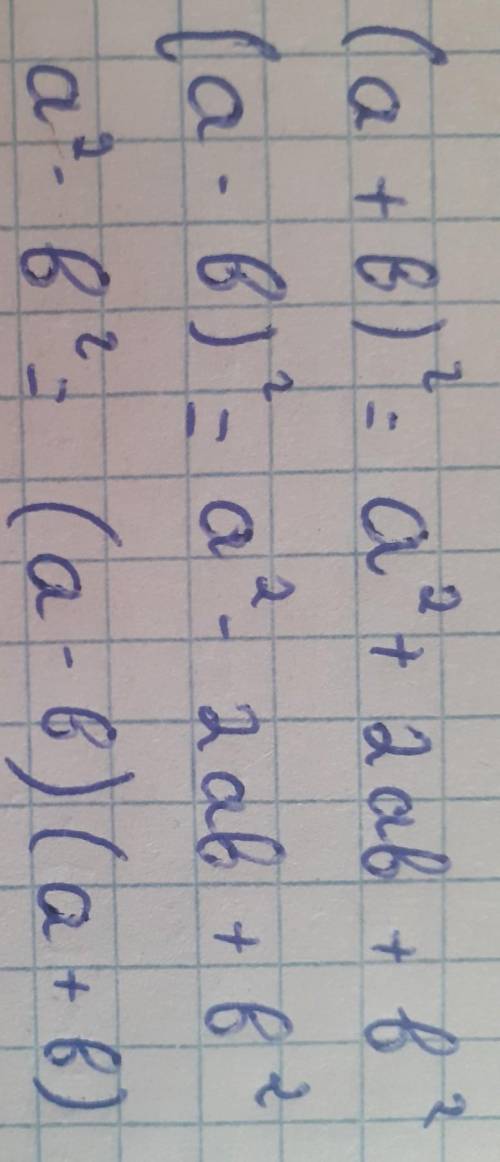 (a + b)² = a² + 2ab + b²
(a - b)² = a² - 2ab + b²
a² - b² = (a - b)(a + b)